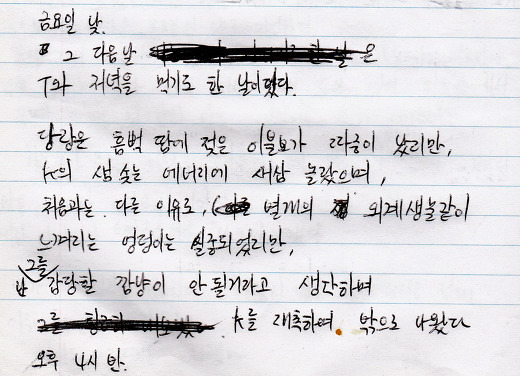 금요일 낮.
그 다음날 은
T와 저녁을 먹기로 한 날이었다.
당람은 흠뻑 땀에 젖은 이불보가 따끔이 났리만,
K의 샘 솟는 에너리에 새삼 놀랐으며,
처음과는 다른 이유로, 별개의 외계생물같이
느껴리는 엉덩이는 실중되었리만,
그를 감당할 깜냥이 안 될거라고 생각하며
K를 재촉하여 밖으로 나왔다
오후 4시 반.